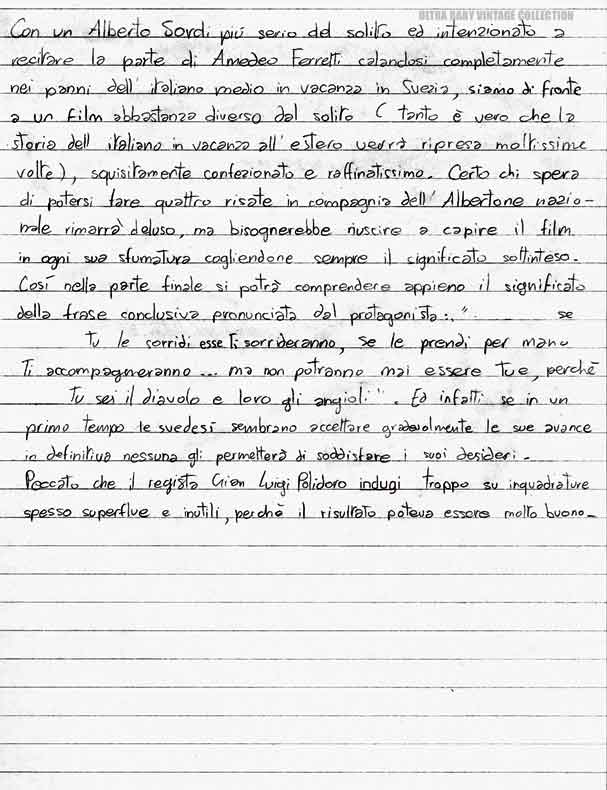 ULTRA RARY VINTAGE COLLECTION
Con un Alberto Sordi più serio del solito ed intenzionato a
recitare la parte di Amedeo Ferretti calandosi completamente
nei panni dell'italiano medio in vacanza in Svezia, siamo di fronte
a un film abbastanza diverso dal solito (tanto è vero che la
storia dell'italiano in vacanza all'estero verrà ripresa moltissime
volte), squisitamente confezionato e raffinatissimo. Certo chi spera
di potersi fare quattro risate in compagnia dell'Albertone nazio-
nale rimarrà deluso, ma bisognerebbe riuscire a capire il film
in ogni sua sfumatura cogliendone sempre il significato sottinteso.
Così nella parte finale si potrà comprendere appieno il significato
della frase conclusiva pronunciata dal protagonista:." se
Tu le sorridi esse Ti sorrideranno, se le prendi per mano
Ti accompagneranno... ma non potranno mai essere Tue, perchè
Tu sei il diavolo e loro gli angioli". Ed infatti se in un
primo tempo le svedesi sembrano accettare gradevolmente le sue avance
in definitiva nessuna gli permetterà di soddisfare i suoi desideri.
Peccato che il regista Gian Luigi Polidoro indugi troppo su inquadrature
spesso superflue e inutili, perchè il risultato poteva essere molto buono.